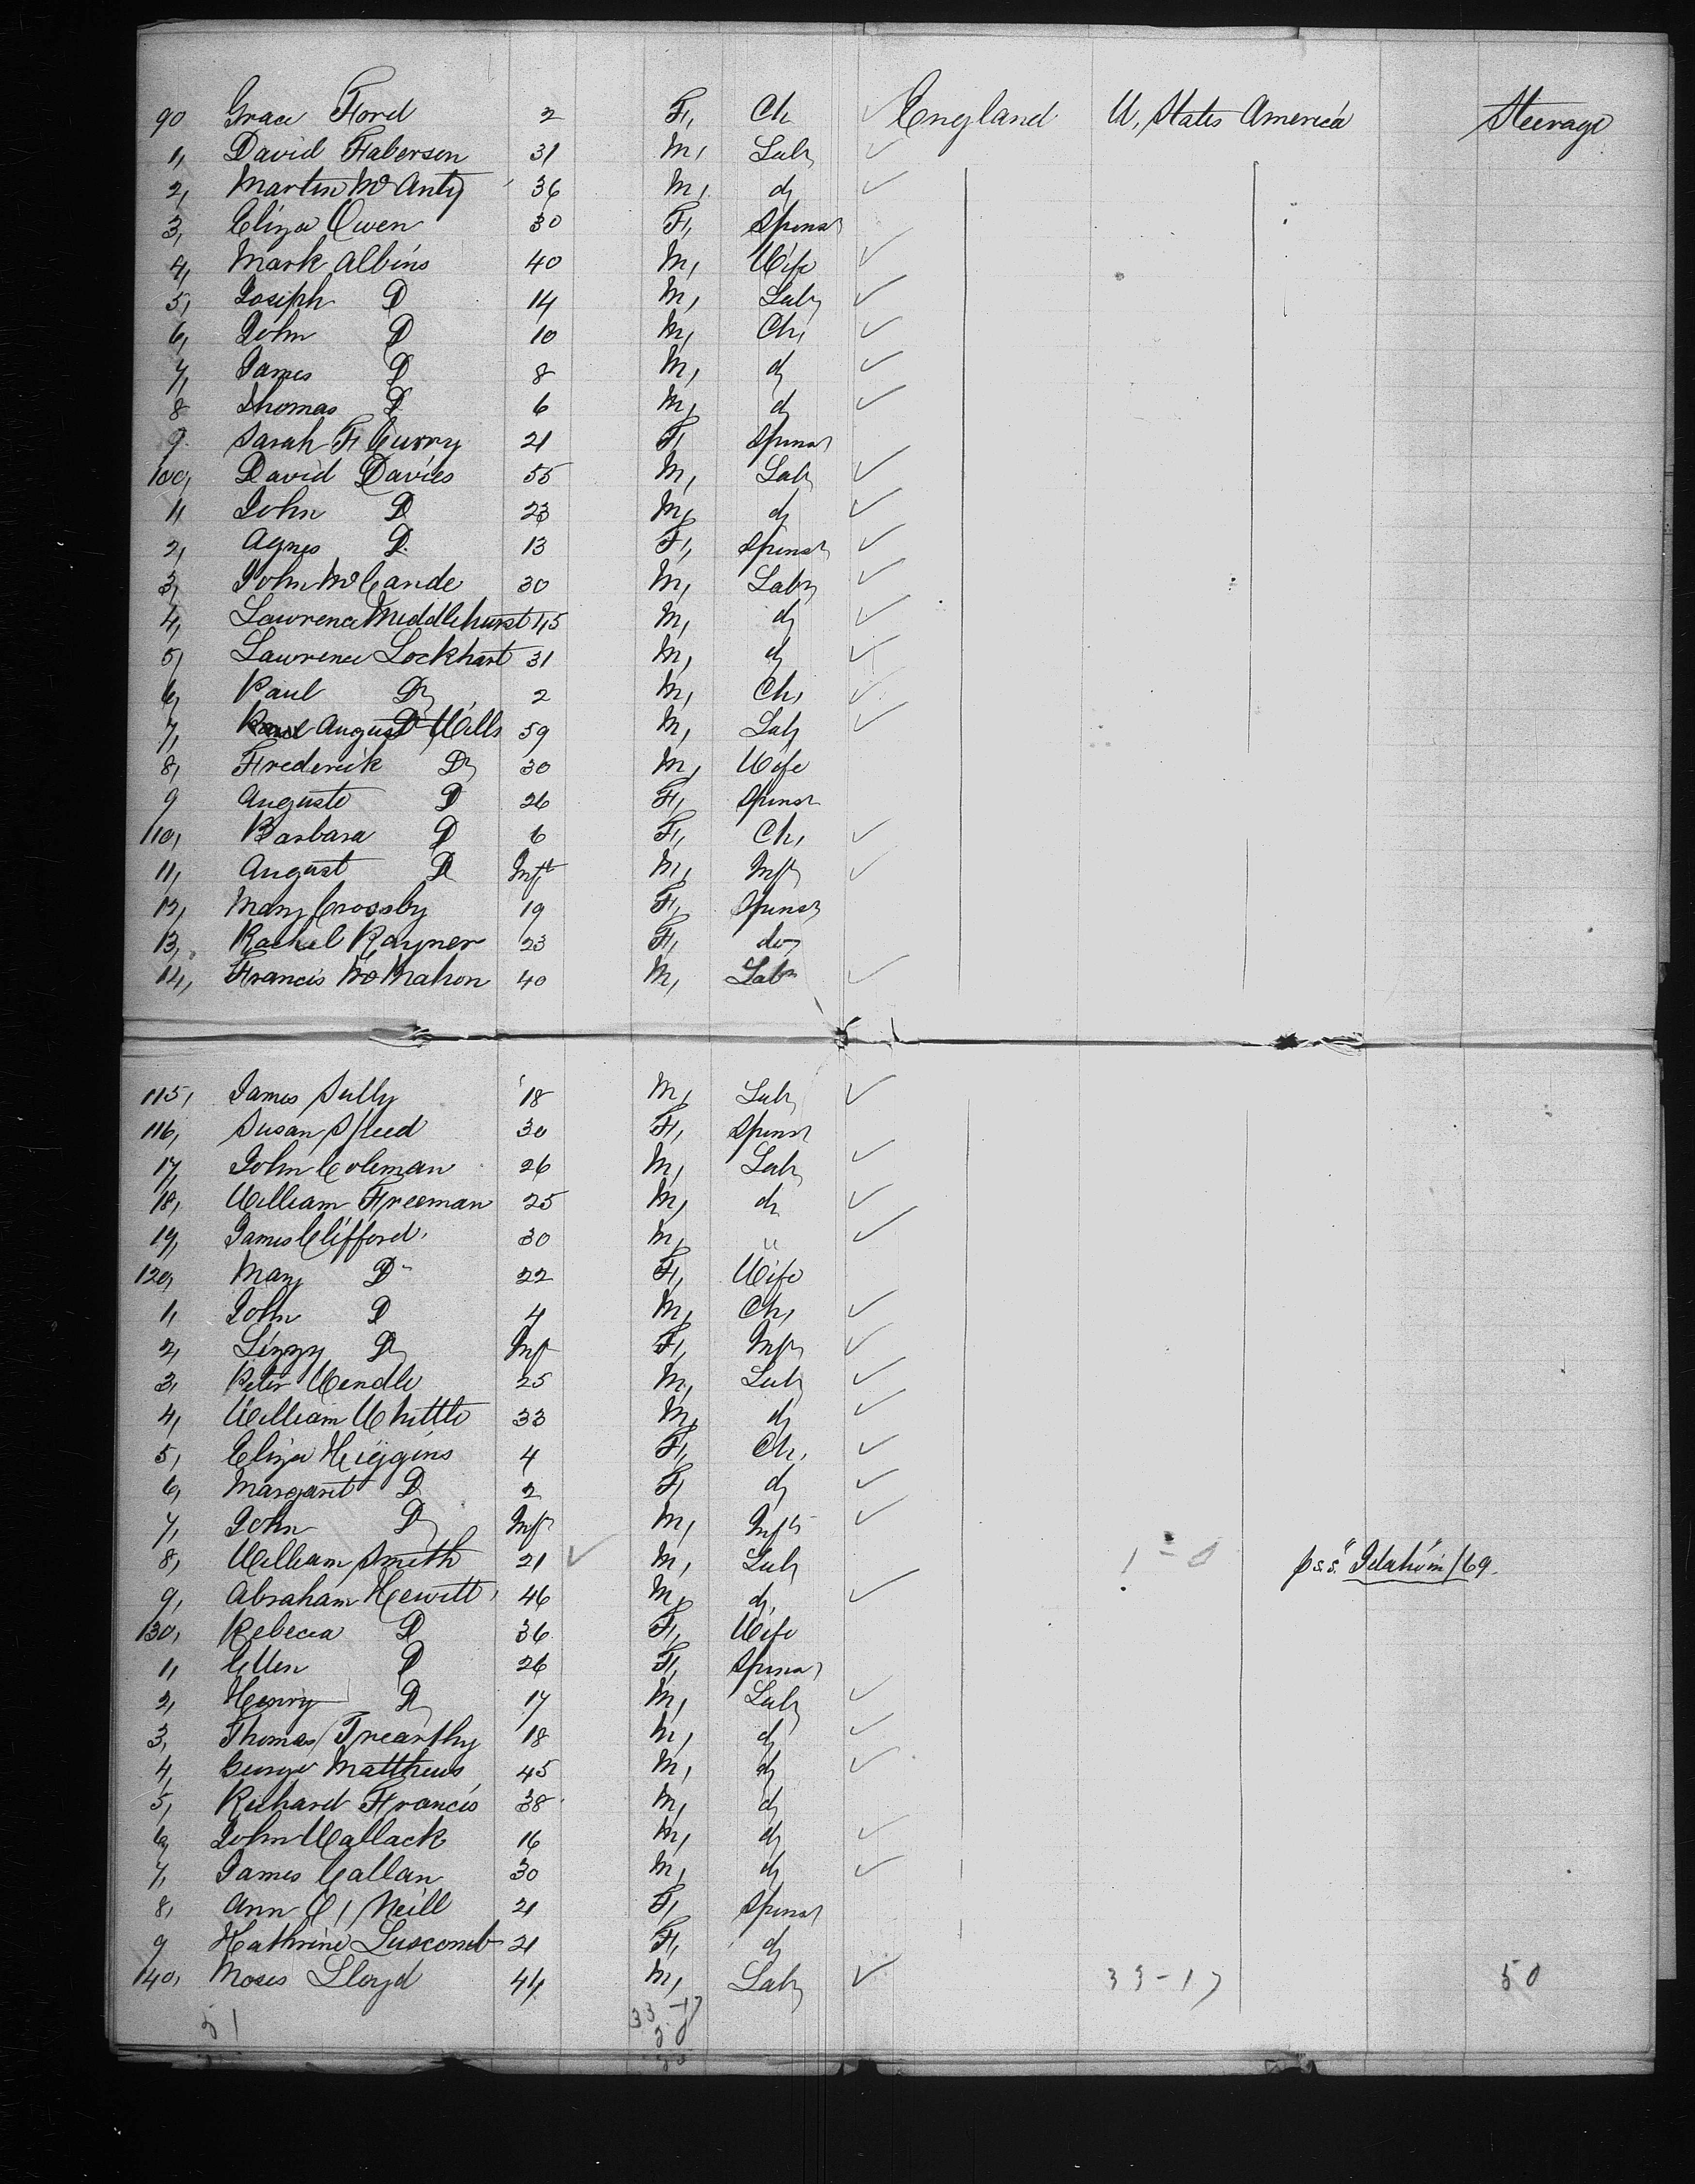 90 Grace Ford 2 F, Ch England U, States America Steerage
1, David Faberson 31 M, Labr
2, Martin McAnty 36 M, do
3, Eliza Owen 30 F, Spinsr
4, Mark Albins 40 M, Wife
5, Joseph D 14 M, Labr
6, John D 10 M, Ch,
7, James D 8 M, do
8 Thomas D 6 M, do
9. Sarah F Curry 21 F, Spinsr
100, David Davies 55 M, Labr
1, John D 23 M, do
2, Agnes D. 13 F, Spinsr
3, John McCande 30 M, Labr
4, Lawrence Middlehurst 45 M, do
5, Lawrence Lockhart 31 M, do
6, Paul Do 2 M, Ch,
7, August Wills 59 M, Labr
8, Frederick Do 30 M, Wife
9 Auguste D 26 F, Spinsr
110, Barbara D 6 F, Ch,
11, August D Inft M, Inft
12, Mary Crossby 19 F, Spinsr
13, Rachel Rayner 23 F, do
14, Francis McMahon 40 M, Labr
115, James Sully 18 M, Labr
116, Susan Speed 30 F, Spinsr
17, John Coleman 26 M, Labr
18, William Freeman 25 M, do
19, James Clifford, 30 M, "
120, Mary D 22 F, Wife
1, John D 4 M, Ch,
2, Lizzy Do Inft F, Inft
3, Peter Wendle 25 M, Labr
4, William Whittle 33 M, do
5, Eliza Higgins 4 F, Ch,
6, Margaret D 2 F, do
7, John Do Inft M, Inft
8, William Smith 21 M, Labr 1-0 p s.s.
9, Abraham Hewitt, 46 M, do,
130, Rebecca D 36 F, Wife
1, Ellen D 26 F, Spinsr
2, Henry Do 17 M, Labr
3, Thomas Trearthy 18 M, do
4, George Matthews 45 M, do
5, Richard Francis 38 M, do
6, John Wallack 16 M, do
7, James Callan 30 M, do
8, Ann O'Neill 21 F, Spinsr
9 Kathrine Luscomb 21 F, do
140, Moses Lloyd 44 M, Labr 33-17 50
51 33-17